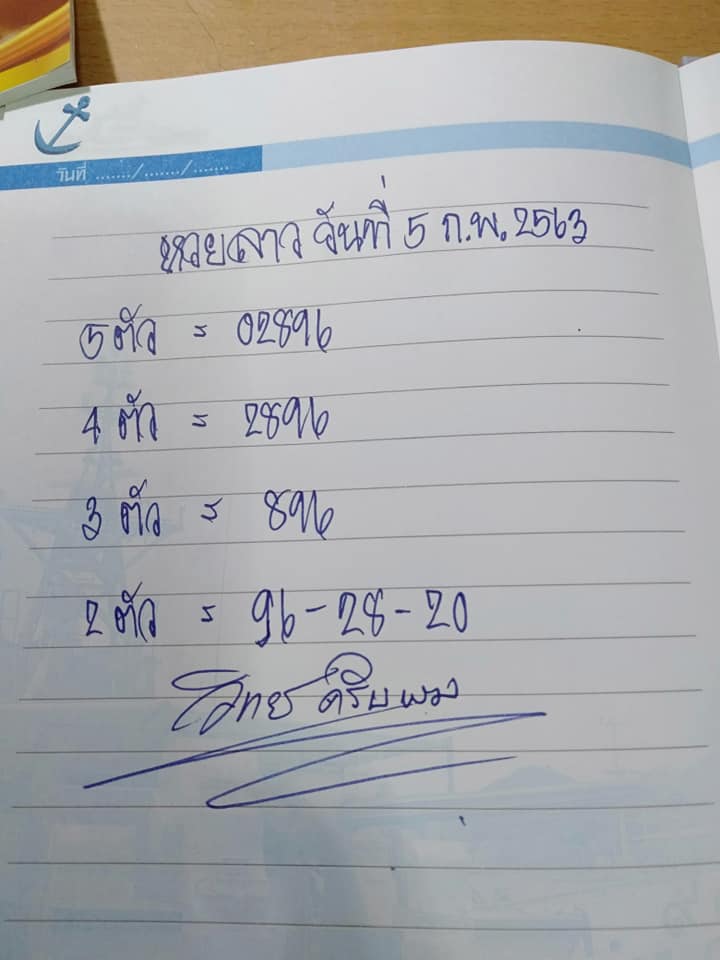 วันที่ ......./......./.......
หวยลาว วันที่ 5 ก.พ. 2563
5 ตัว = 02896
4 ตัว = 2896
3 ตัว = 896
2 ตัว = 96-28-20